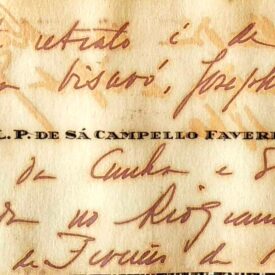 retrato é de
bisavó, Joseph
L. P. DE SÁ CAMPELLO FAVER
da Cunha e S
da no Rio Gran
de Fevereiro de